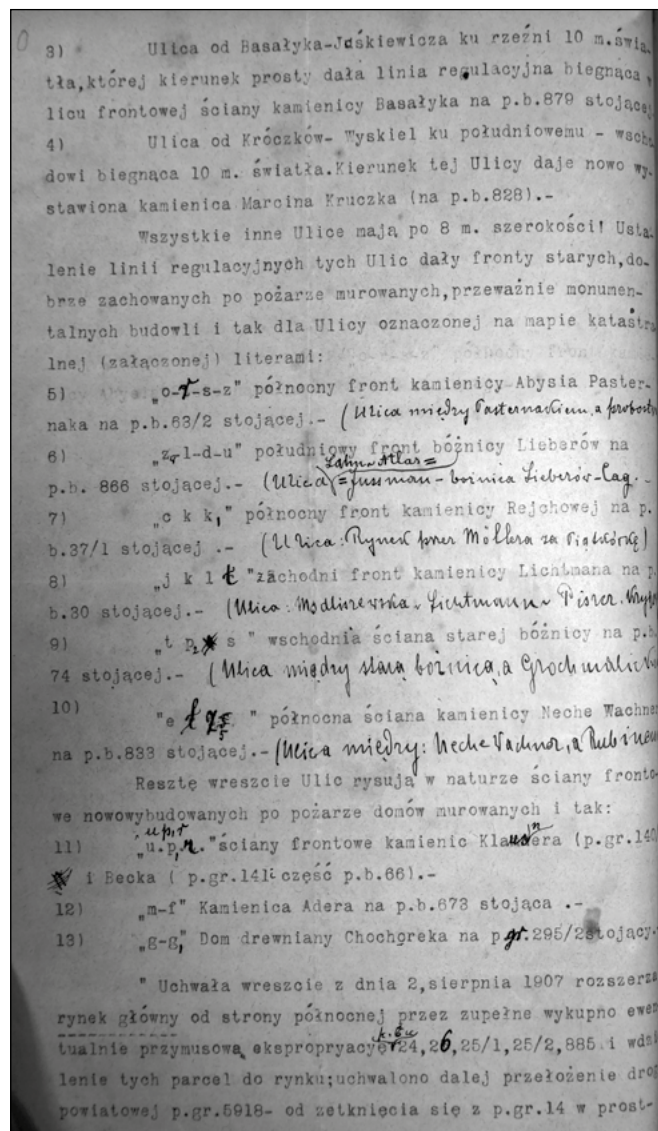 3) Ulica od Basałyka-Jośkiewicza ku rzeźni 10 m.świa
tła,której kierunek prosty dała linia regulacyjna biegnąca
licu frontowej ściany kamienicy Basałyka na p.b.879 stojącej
4) Ulica od Króczków- Wyskiel ku południowemu - wscho
dowi biegnąca 10 m. światła.Kierunek tej Ulicy daje nowo wy-
stawiona kamienica Marcina Kruczka (na p.b.828).-
Wszystkie inne Ulice mają po 8 m. szerokości! Usta-
lenie linii regulacyjnych tych Ulic dały fronty starych,do-
brze zachowanych po pożarze murowanych,przeważnie monumen-
talnych budowli i tak dla Ulicy oznaczonej na mapie katastra
lnej (załączonej) literami:
5) „o-r-s-z" północny front kamienicy Abysia Paster-
naka na p.b.63/2 stojącej.- (Ulica między Pasternakiem, a probostw
6) „z-l-d-u" południowy front bóżnicy Lieberów na
p.b. 866 stojącej.- (Ulica = Jussman - bożnica Lieberów-Lag.
7) „c k k," północny front kamienicy Rejchowej na p.
b.37/1 stojącej .- (Ulica: Rynek przez Möllera za Piątkówkę)
8) „j k l ł "zachodni front kamienicy Lichtmana na p.
b.30 stojącej.- (Ulica: Modliszewska - Lichtmann -
9) „t p s " wschodnia ściana starej bóżnicy na p.b.
74 stojącej.- (Ulica między starą bożnicą, a Grochmalic
10) "e ł " północna ściana kamienicy Neche Wachner
na p.b.833 stojącej.- (Ulica między: Neche Wachner, a Rubinem
Resztę wreszcie Ulic rysują w naturze ściany fronto-
we nowowybudowanych po pożarze domów murowanych i tak:
u p, r
11) „u.p,r. "ściany frontowe kamienic Klausnera (p.gr.140
i Becka ( p.gr.141i część p.b.66).-
12) „m-f" Kamienica Adera na p.b.673 stojąca .-
13) „g-g," Dom drewniany Chochoreka na p.gr.295/2stojący.
" Uchwała wreszcie z dnia 2,sierpnia 1907 rozszerza
rynek główny od strony północnej przez zupełne wykupno ewen
tualnie przymusową ekspropryacye 24,26,25/1,25/2,885 i wdzi
lenie tych parcel do rynku;uchwalono dalej przełożenie drog
powiatowej p.gr.5918- od zetknięcia się z p.gr.14 w prost-